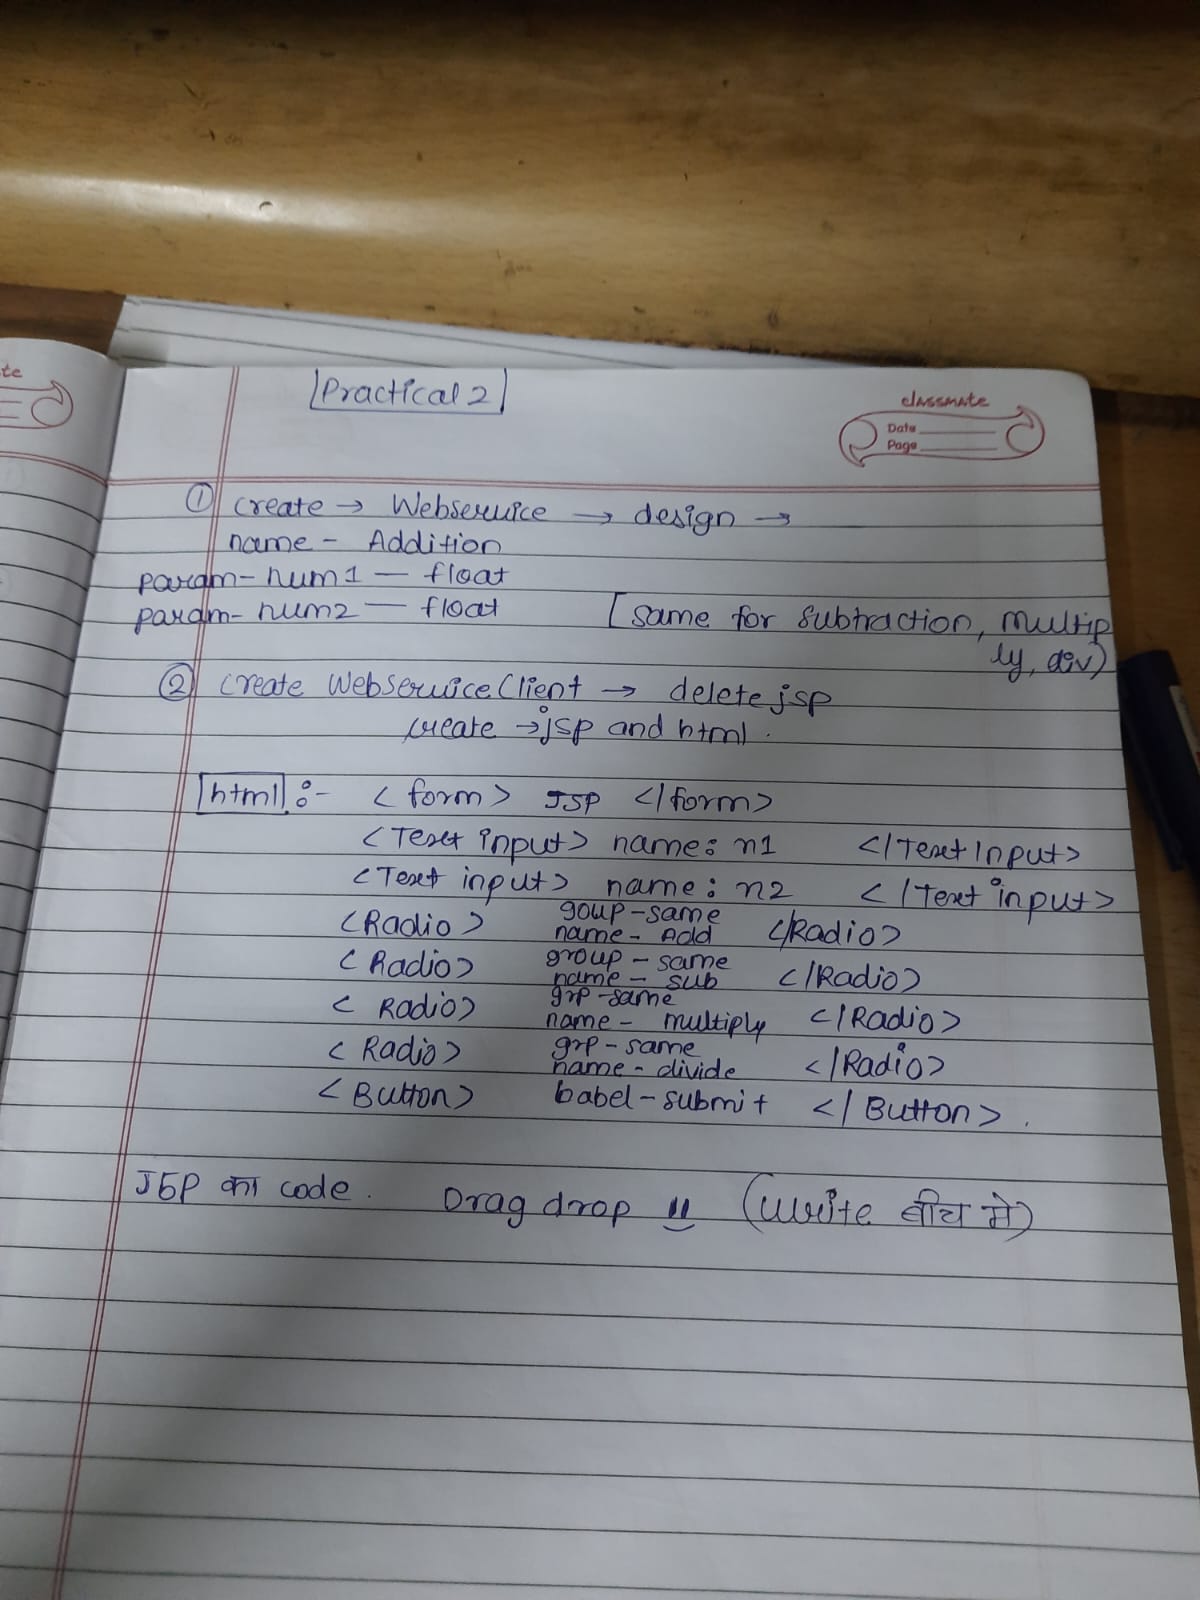 te
Practical 2
classmate
Date
Page
① create → Webservice → design →
name - Addition
param - num1 — float
param - num2 — float [same for subtraction, multip
ly, div)
② create WebserviceClient → delete jsp
create → jsp and html.
html :- <form> JSP </form>
<Text input> name: n1 </Text Input>
<Text input> name: n2 </Text input>
<Radio> goup-same
name - Add </Radio>
<Radio> group - same
name - sub </Radio>
<Radio> grp -same
name - multiply </Radio>
<Radio> grp - same
name - divide </Radio>
<Button> babel - submit </Button>.
JSP का code. Drag drop " (write बीच मे)